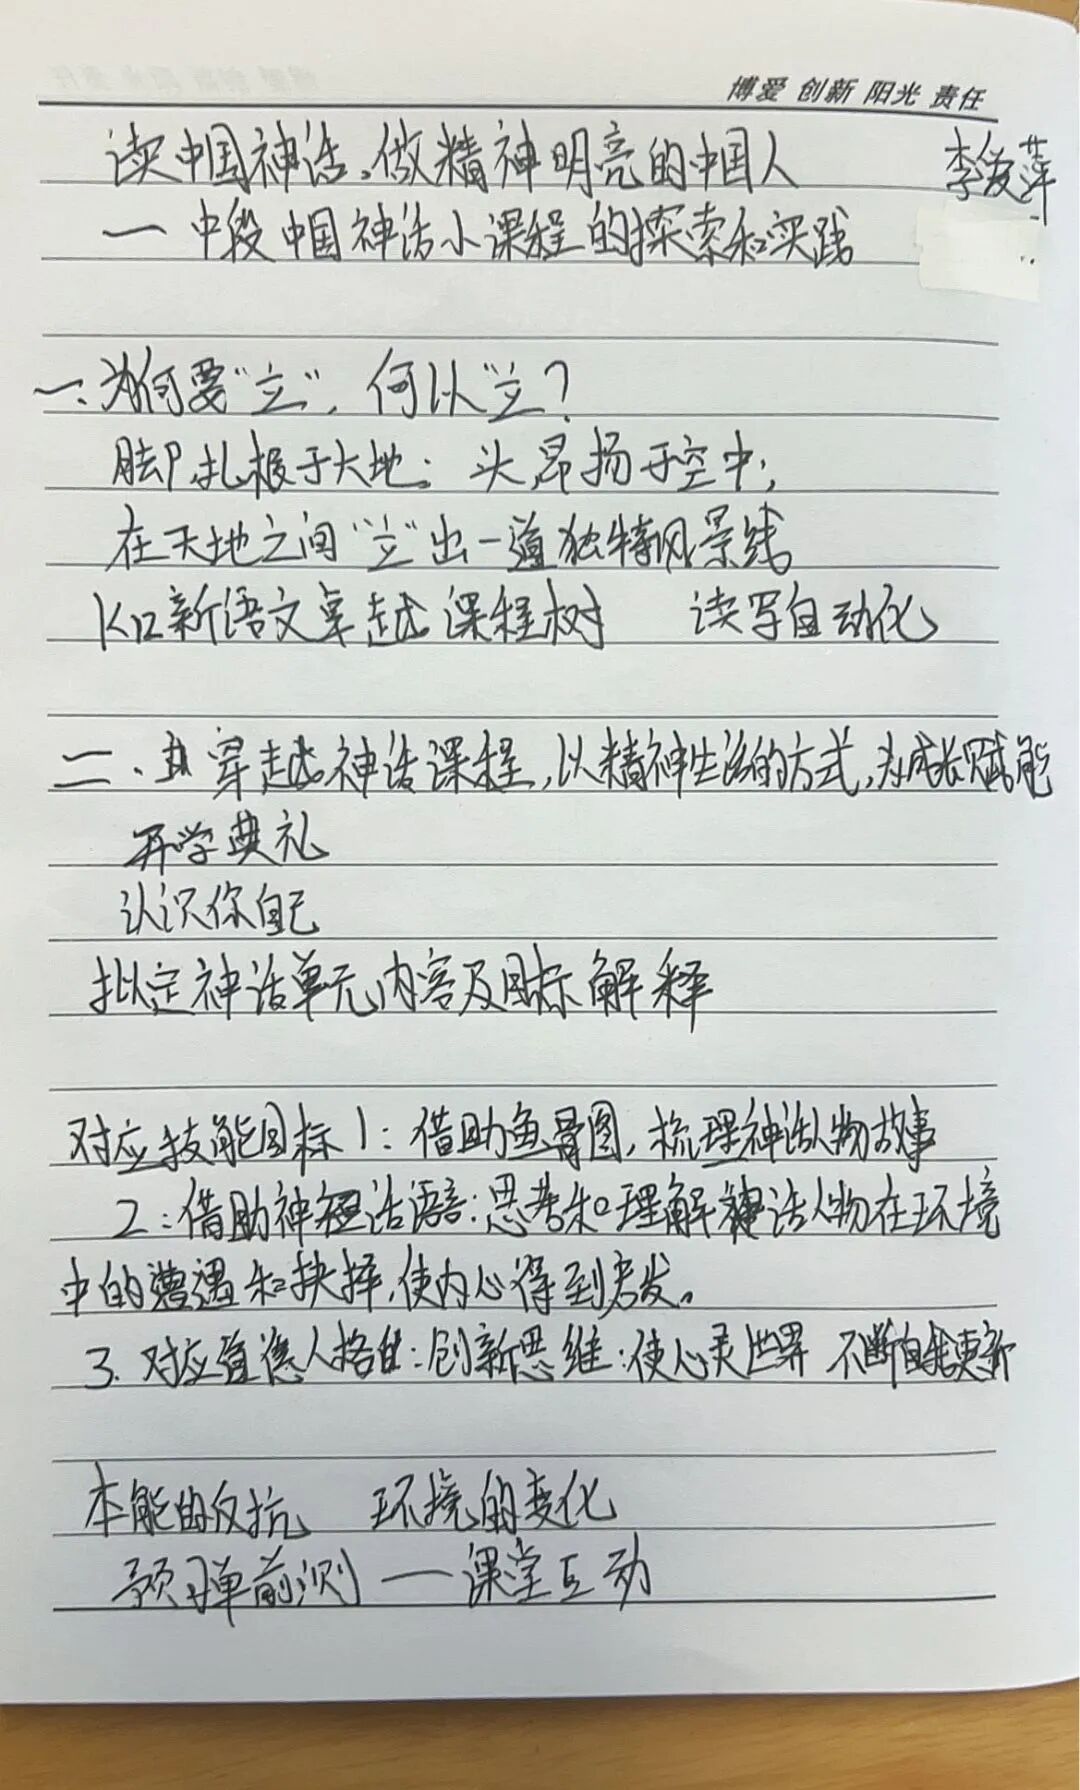 博爱 创新 阳光 责任
读中国神话、做精神明亮的中国人 李爱萍
一 中段中国神话小课程的探索和实践
一、为何要“立”,何以“立”?
脚,扎根于大地;头,昂扬于空中;
在天地之间“立”出一道独特风景线
K12新语文卓越课程树 读写自动化
二、穿越神话课程,以精神生活的方式,为成长赋能
开学典礼
认识你自己
拟定神话单元内容及目标解释
对应技能目标1:借助鱼骨图,梳理神话人物故事
2:借助神话语言:思考和理解神话人物在环境
中的遭遇和抉择,使内心得到启发。
3. 对应道德人格:创新思维:使心灵世界 不断自我更新
本能的反抗 环境的变化
前测一课堂互动